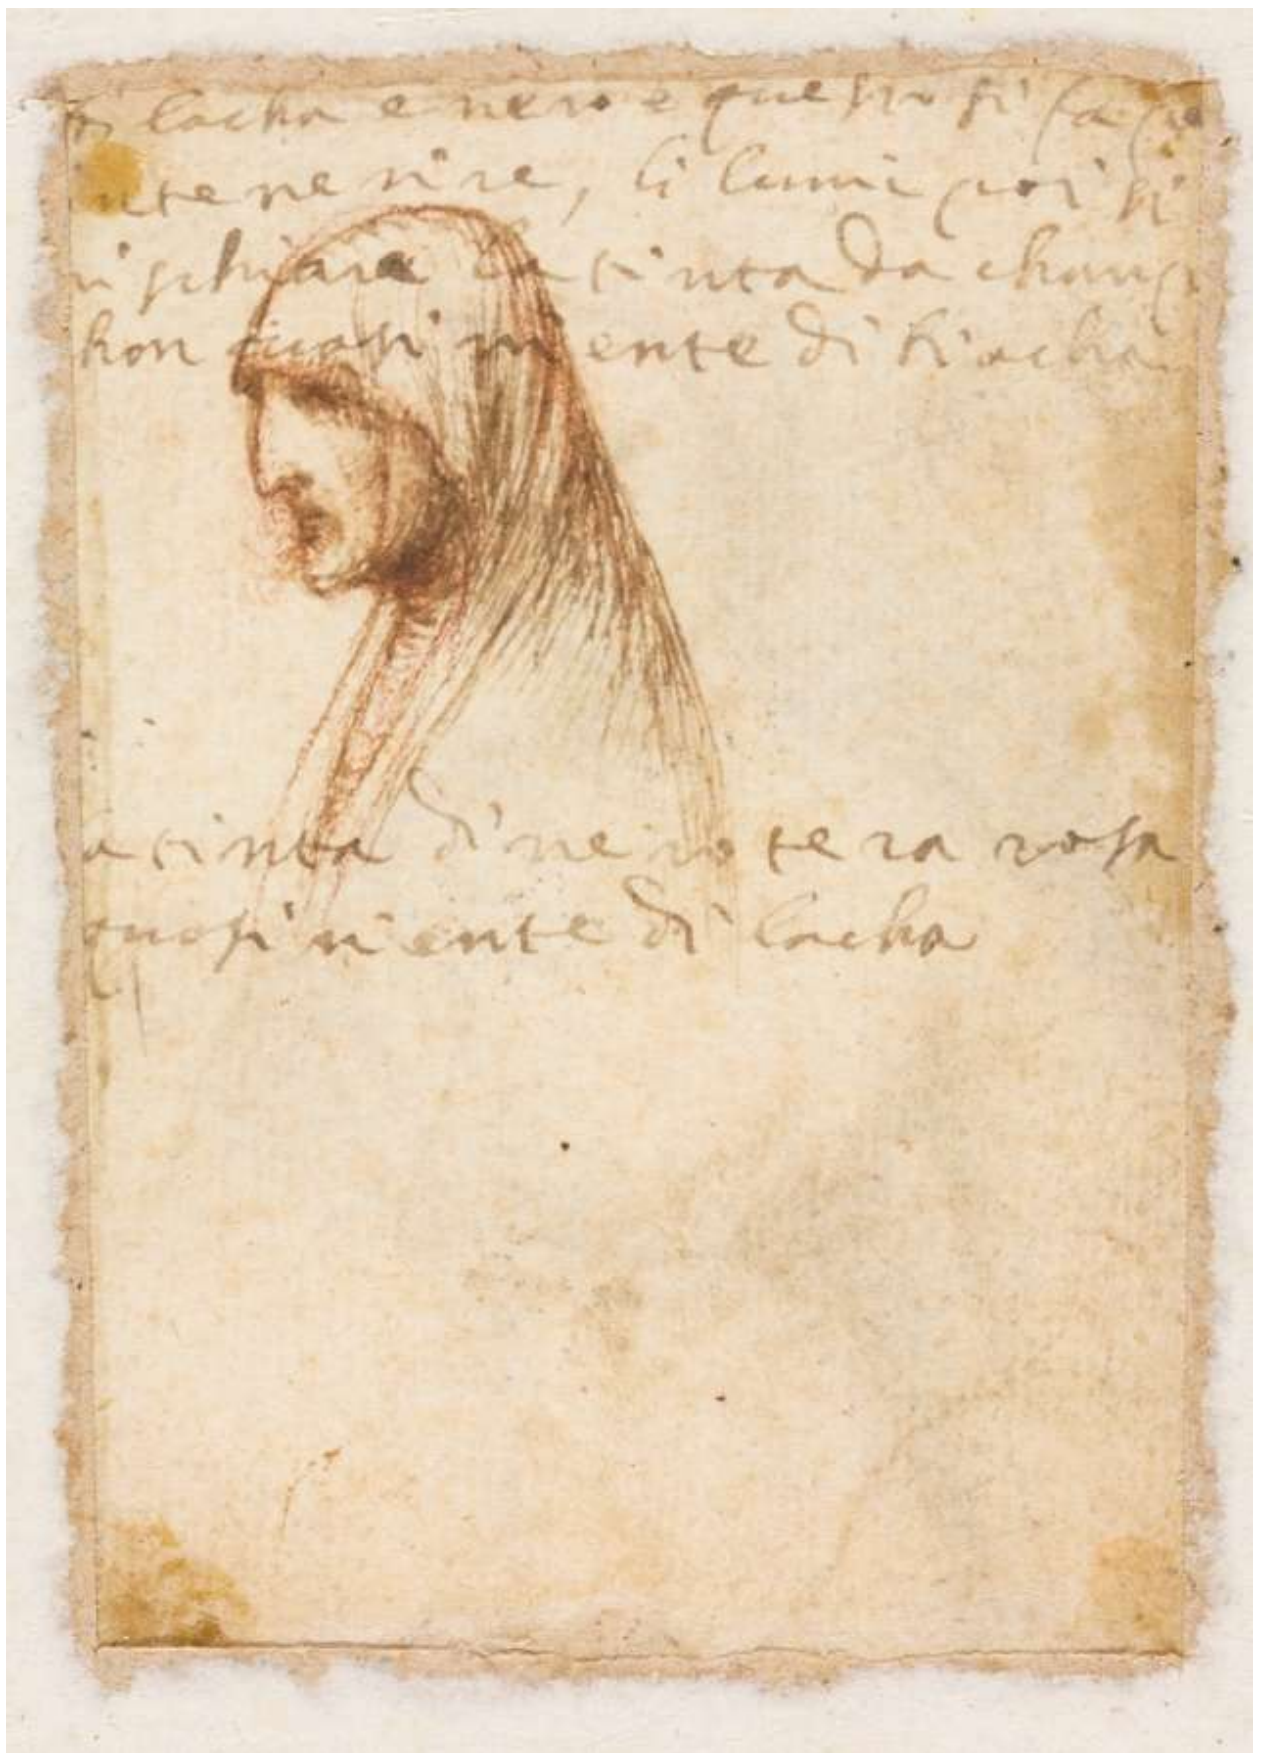 di lacha e nero e questo si fa p
intenerire, li lumi poi si
rischiara la tinta da champi
hon quasi niente di biacha
la tinta di nero tera rosa
quasi niente di lacha